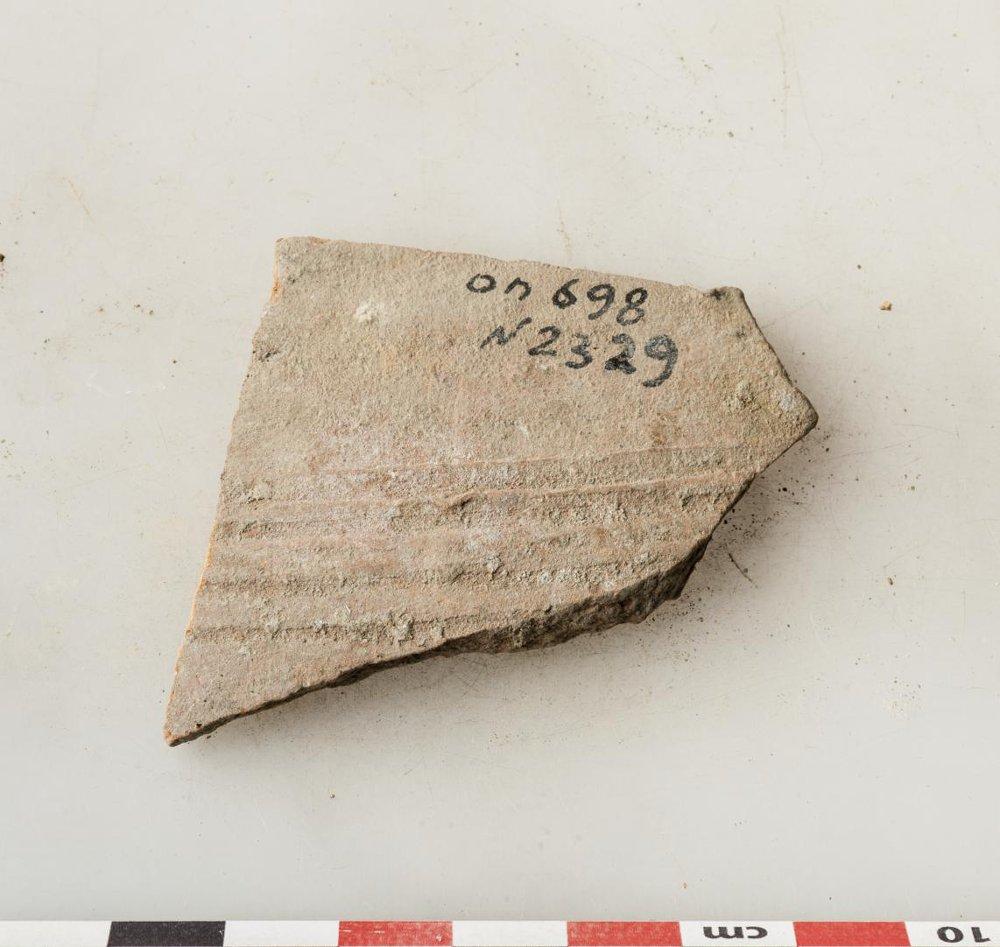 on 698
N2329
cm
10